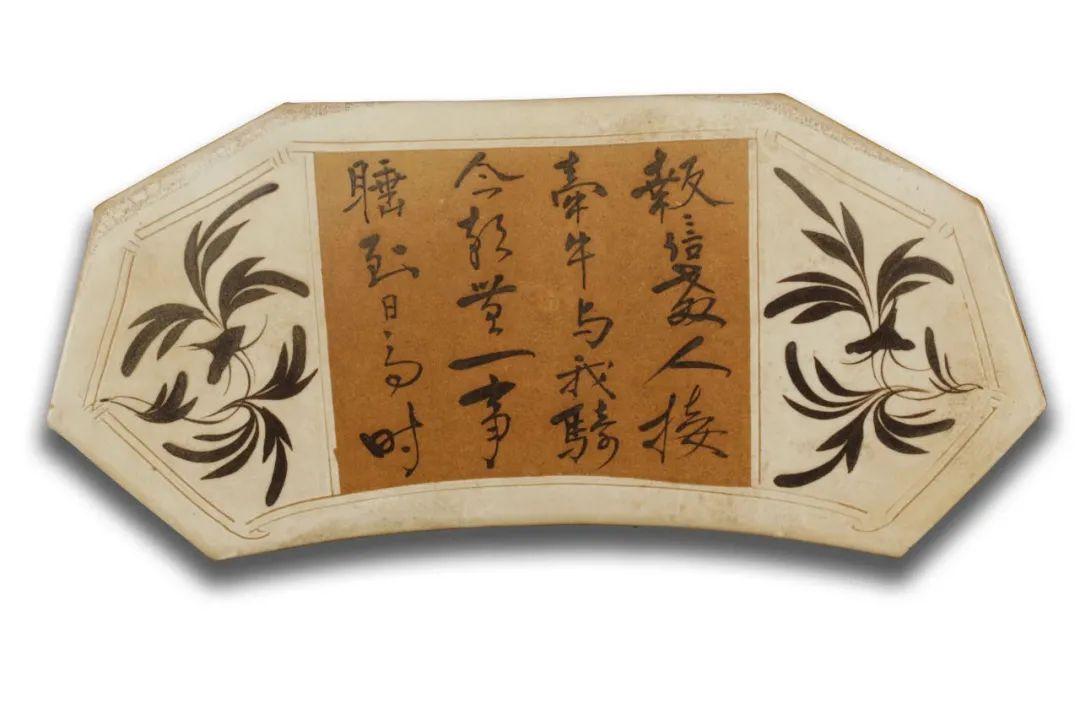 報信人接
牽牛与我騎
今朝無一事
睡到日高时